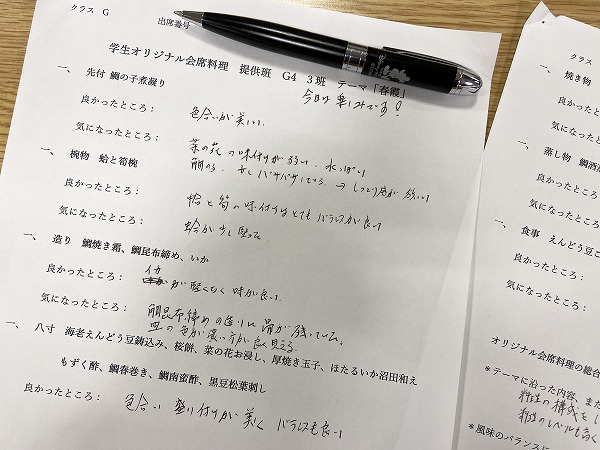 クラス　G
出席番号
学生オリジナル会席料理　提供班　G4　3班　テーマ「春霞」
今日は楽しみです！
一、　先付　鯛の子煮凝り
良かったところ：　色合いが美しい
気になったところ：　菜の花の味付けが弱い　水っぽい
鯛の子　少しパサパサしている　→　しっとり感が欲しい
一、　椀物　蛤と筍椀
良かったところ：　蛤と筍の味付けはとてもバランスが良い
気になったところ：　蛤が少し堅い
一、　造り　鯛焼き霜、鯛昆布締め、いか
良かったところ：　イカが堅くなく味が良い
気になったところ：　鯛昆布締めの造りに骨が残っていた。
皿の色が濃い方が良く見える
一、　八寸　海老えんどう豆鋳込み、桜餅、菜の花お浸し、厚焼き玉子、ほたるいか沼田和え
もずく酢、鯛春巻き、鯛南蛮酢、黒豆松葉刺し
良かったところ：　色合い　盛り付けが美しく　バランスも良い
クラス
一、　焼き物
良かったところ：
気になったところ：
一、　蒸し物　鯛酒
良かったところ：
気になったところ：
一、　食事　えんどう豆ご
良かったところ：
気になったところ：
オリジナル会席料理の総合
＊テーマに沿った内容、また
料理の構成を
料理のレベルも高く
＊風味のバランスに